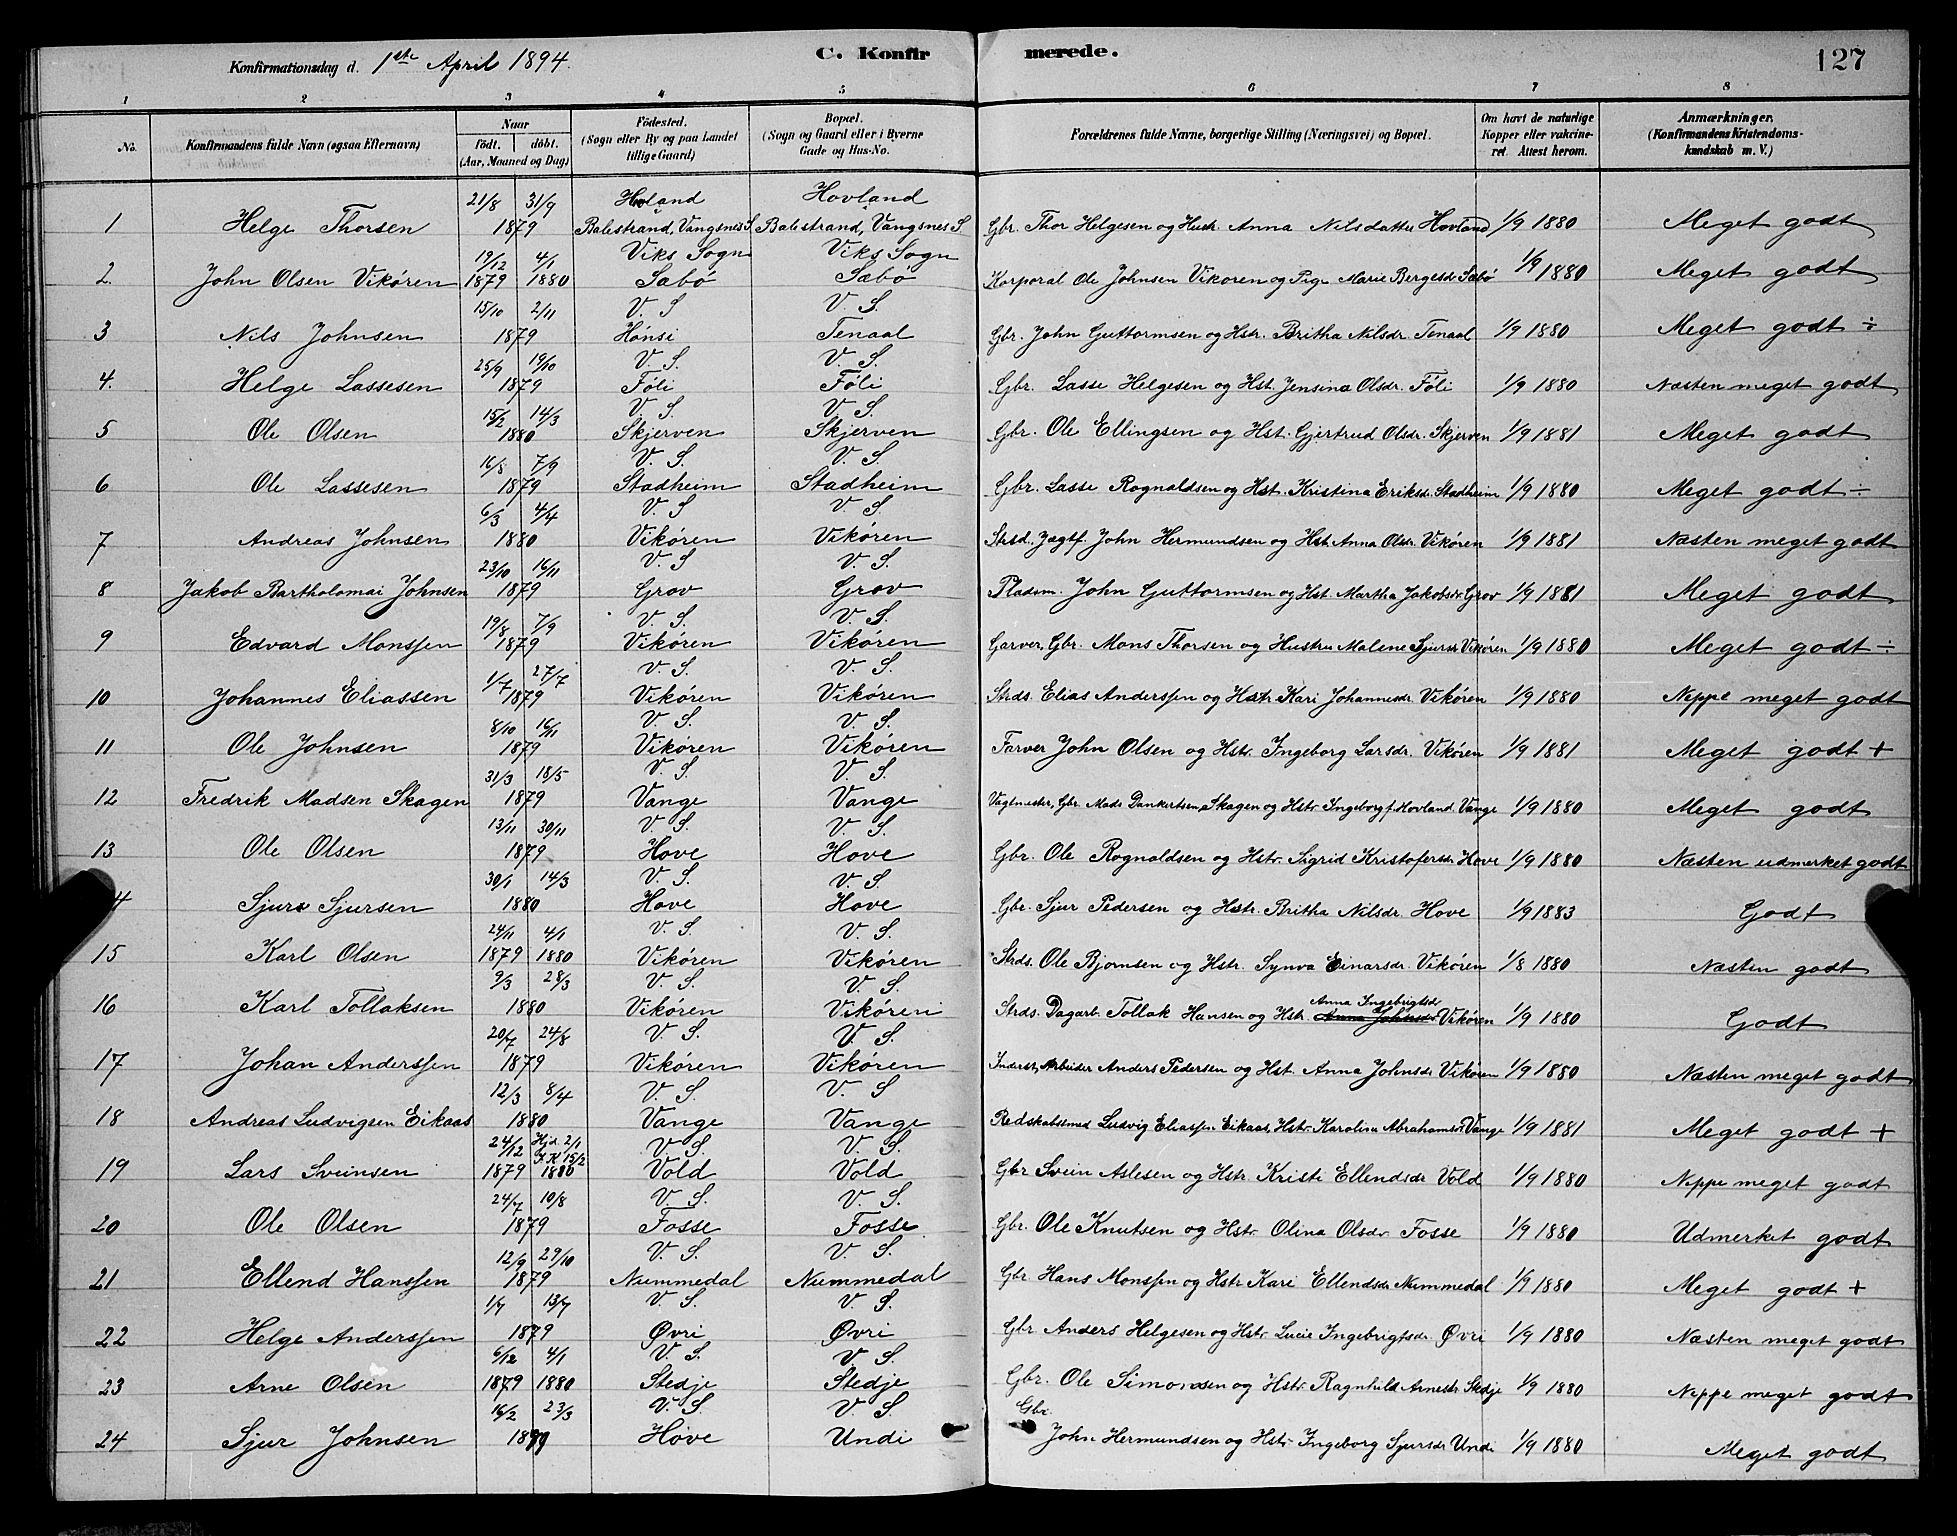 Konfirmationsdag d. 1ste April 1894. C. Konfirmerede. 127
1 2 3 4 5 6 7 8
No. Konfirmandens fulde Navn (ogsaa Efternavn) Naar födt. döbt. (Aar, Maaned og Dag) Födested. (Sogn eller By og paa Landet tillige Gaard) Bopæl. (Sogn og Gaard eller i Byerne Gade og Hus-No. Forældrenes fulde Navne, borgerlige Stilling (Næringsvei) og Bopæl. Om havt de naturlige Kopper eller vakcineret. Attest herom. Anmærkninger. (Konfirmandens Kristendomskundskab m. V.)
1 Helge Thorsen 21/8 31/9 1879 Hovland Balestrand, Vangsnes S. Hovland Balestrand, Vangsnes S. Gbr. Thor Helgesen og Hustr. Anna Nilsdatter Hovland 1/9 1880 Meget godt
2. John Olsen Vikøren 19/12 1879 4/1 1880 Viks Sogn Sæbö Viks Sogn Sæbö Korporal Ole Johnsen Vikøren og Pige Marie Bergesdr Sæbö 1/9 1880 Meget godt
3 Nils Johnsen 15/10 2/11 1879 V. S Hönsi V. S. Tenaal Gbr. John Guttormsen og Hstr. Britha Nilsdr. Tenaal 1/9 1880 Meget godt ÷
4. Helge Lassesen 25/9 19/10 1879 V. S. Föli V. S. Föli Gbr. Lasse Helgesen og Hst. Jensina Olsdr. Föli 1/9 1880 Næsten meget godt
5 Ole Olsen 15/2 14/3 1880 V. S. Skjerven V. S. Skjerven Gbr. Ole Ellingsen og Hst. Gjertrud Olsdr. Skjerven 1/9 1881 Meget godt
6 Ole Lassesen 16/8 7/9 1879 V. S. Stadheim V. S. Stadheim Gbr. Lasse Rognaldsen og Hst. Kristina Eriksdr. Stadheim 1/9 1880 Meget godt ÷
7 Andreas Johnsen 6/3 4/4 1880 V. S Vikören V. S. Vikören Strsd. Jægtf. John Hermundsen og Hst. Anna Olsdr. Vikören 1/9 1881 Næsten meget godt
8 Jakob Bartholomai Johnsen 23/10 16/11 1879 V. S Grov V. S. Grov Pladsm. John Guttormsen og Hst. Martha Jakobsdr Grov 1/9 1881 Meget godt
9 Edvard Monssen 19/8 7/9 1879 V. S. Vikören V. S. Vikören Garver, Gbr. Mons Thorsen og Hustru Malene Sjursdr Vikören 1/9 1880 Meget godt ÷
10 Johannes Eliassen 1/7 27/7 1879 V. S. Vikören V. S. Vikören Strds. Elias Anderssen og Hstr Kari Johannesdr. Vikören 1/9 1880 Neppe meget godt
11 Ole Johnsen 8/10 16/11 1879 V. S. Vikören V. S. Vikören Farver John Olsen og Hstr. Ingeborg Larsdr. Vikören 1/9 1881 Meget godt +
12 Fredrik Madsen Skagen 31/3 18/5 1879 V. S. Vange V. S. Vange Vagtmester, Gbr. Mads Dankertsen Skagen og Hstr Ingeborg f. Hovland. Vange 1/9 1880 Meget godt
13 Ole Olsen 13/11 30/11 1879 V. S. Hove V. S. Hove Gbr. Ole Rognaldsen og Hstr. Sigrid Kristofersdr Hove 1/9 1880 Næsten udmerket godt
4 Sjur Sjursen 30/1 14/3 1880 V. S. Hove V. S. Hove Gbr. Sjur Pedersen og Hstr. Britha Nilsdr. Hove 1/9 1883 Godt
15 Karl Olsen 24/11 1879 4/1 1880 V. S. Vikören V. S. Vikören Strds. Ole Bjornsen og Hstr. Synva Einarsdr. Vikören 1/8 1880 Næsten godt
16 Karl Tollaksen 9/3 28/3 1880 V. S. Vikören V. S. Vikören Strds. Dagarb. Tollak Hansen og Hstr. Anna Johnsdr Anna Ingebrigtsdr Vikören 1/9 1880 Godt
17 Johan Anderssen 20/7 24/8 1879 V. S. Vikören V. S. Vikören Inderst, Arbeider Anders Pedersen og Hst. Anna Johnsdr Vikören 1/9 1880 Næsten meget godt
18 Andreas Ludvigsen Eikaas 12/3 8/4 1880 V. S. Vange V. S Vange Redskabssmed Ludvig Eliassen Eikaas, Hstr. Karolina Abrahamsdr Vange 1/9 1881 Meget godt +
19 Lars Sveinsen 24/12 1879 Hjd. 2/1 I. K 15/2 1880 V. S. Vold V. S. Vold Gbr Svein Aslesen og Hstr Kristi Ellendsdr Vold 1/9 1880 Neppe meget godt
20 Ole Olsen 24/7 10/8 1879 V. S. Fosse V. S. Fosse Gbr. Ole Knutsen og Hstr Olina Olsdr Fosse 1/9 1880 Udmerket godt
21 Ellend Hanssen 12/9 29/10 1879 V. S. Nummedal V. S. Nummedal Gbr Hans Monssen og Hstr Kari Ellendsdr Nummedal 1/9 1880 Meget godt +
22 Helge Anderssen 1/7 13/7 1879 V. S. Øvri V. S. Øvri Gbr Anders Helgesen og Hstr Lucie Ingebrigtsdr. Øvri 1/9 1880 Næsten meget godt
23 Arne Olsen 6/12 1879 4/1 1880 V. S. Stedje V. S. Stedje Gbr. Ole Simonsen og Hstr. Ragnhild Arnesdr Stedje 1/9 1880 Neppe meget godt
24 Sjur Johnsen 16/2 23/3 V. S. Hove V. S. Undi Gbr. John Hermundsen og Hstr Ingeborg Sjursdr Undi 1/9 1880 Meget godt